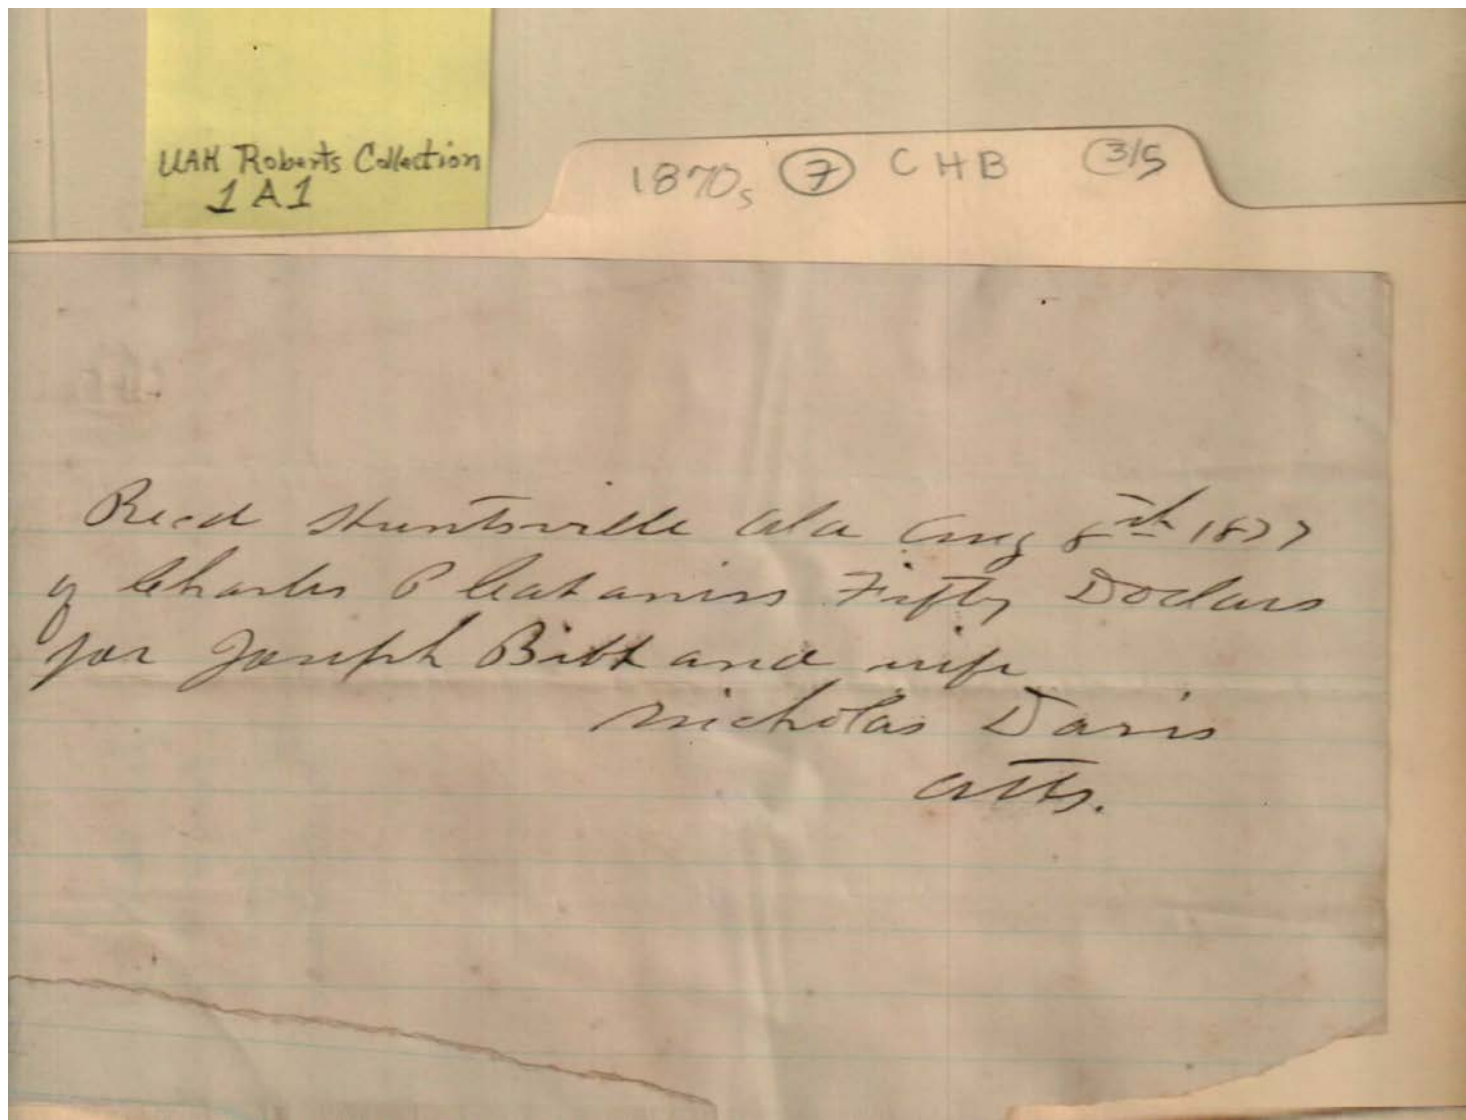 UAH Roberts Collection
1A1
1870s 7 CHB 3/5
Recd Huntsville Ala Aug 8th 1877
of Charles P Cabaniss Fifty Dollars
for Joseph Bibb and wife
Nicholas Davis
atty.